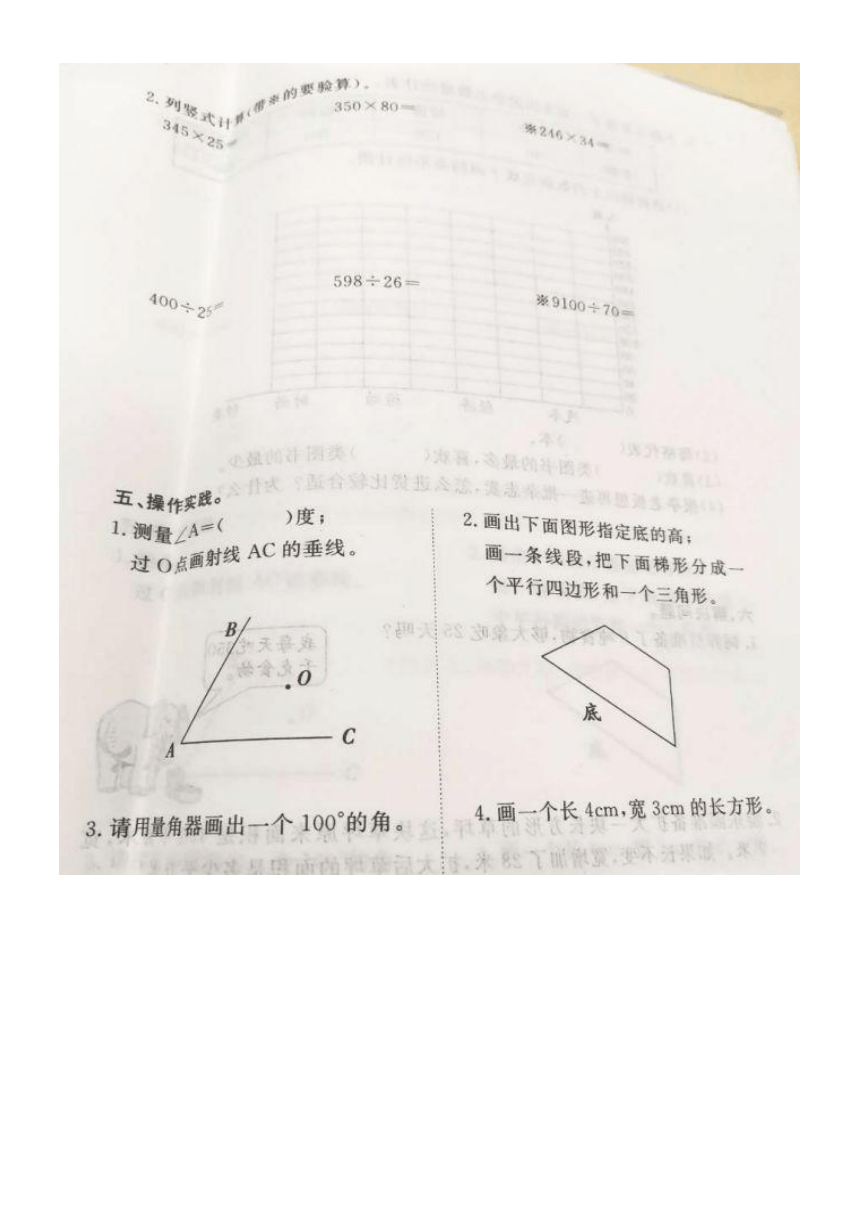 2、列竖式计算(带※的要验算)。
345×25= 350×80= ※246×34=
400÷25= 598÷26= ※9100÷70=
五、操作实践。
1. 测量∠A=( )度;
过O点画射线 AC 的垂线。
2. 画出下面图形指定底的高;
画一条线段,把下面梯形分成一
个平行四边形和一个三角形。
B
O
A
C
底
3. 请用量角器画出一个 100°的角。
4. 画一个长 4cm,宽 3cm 的长方形。